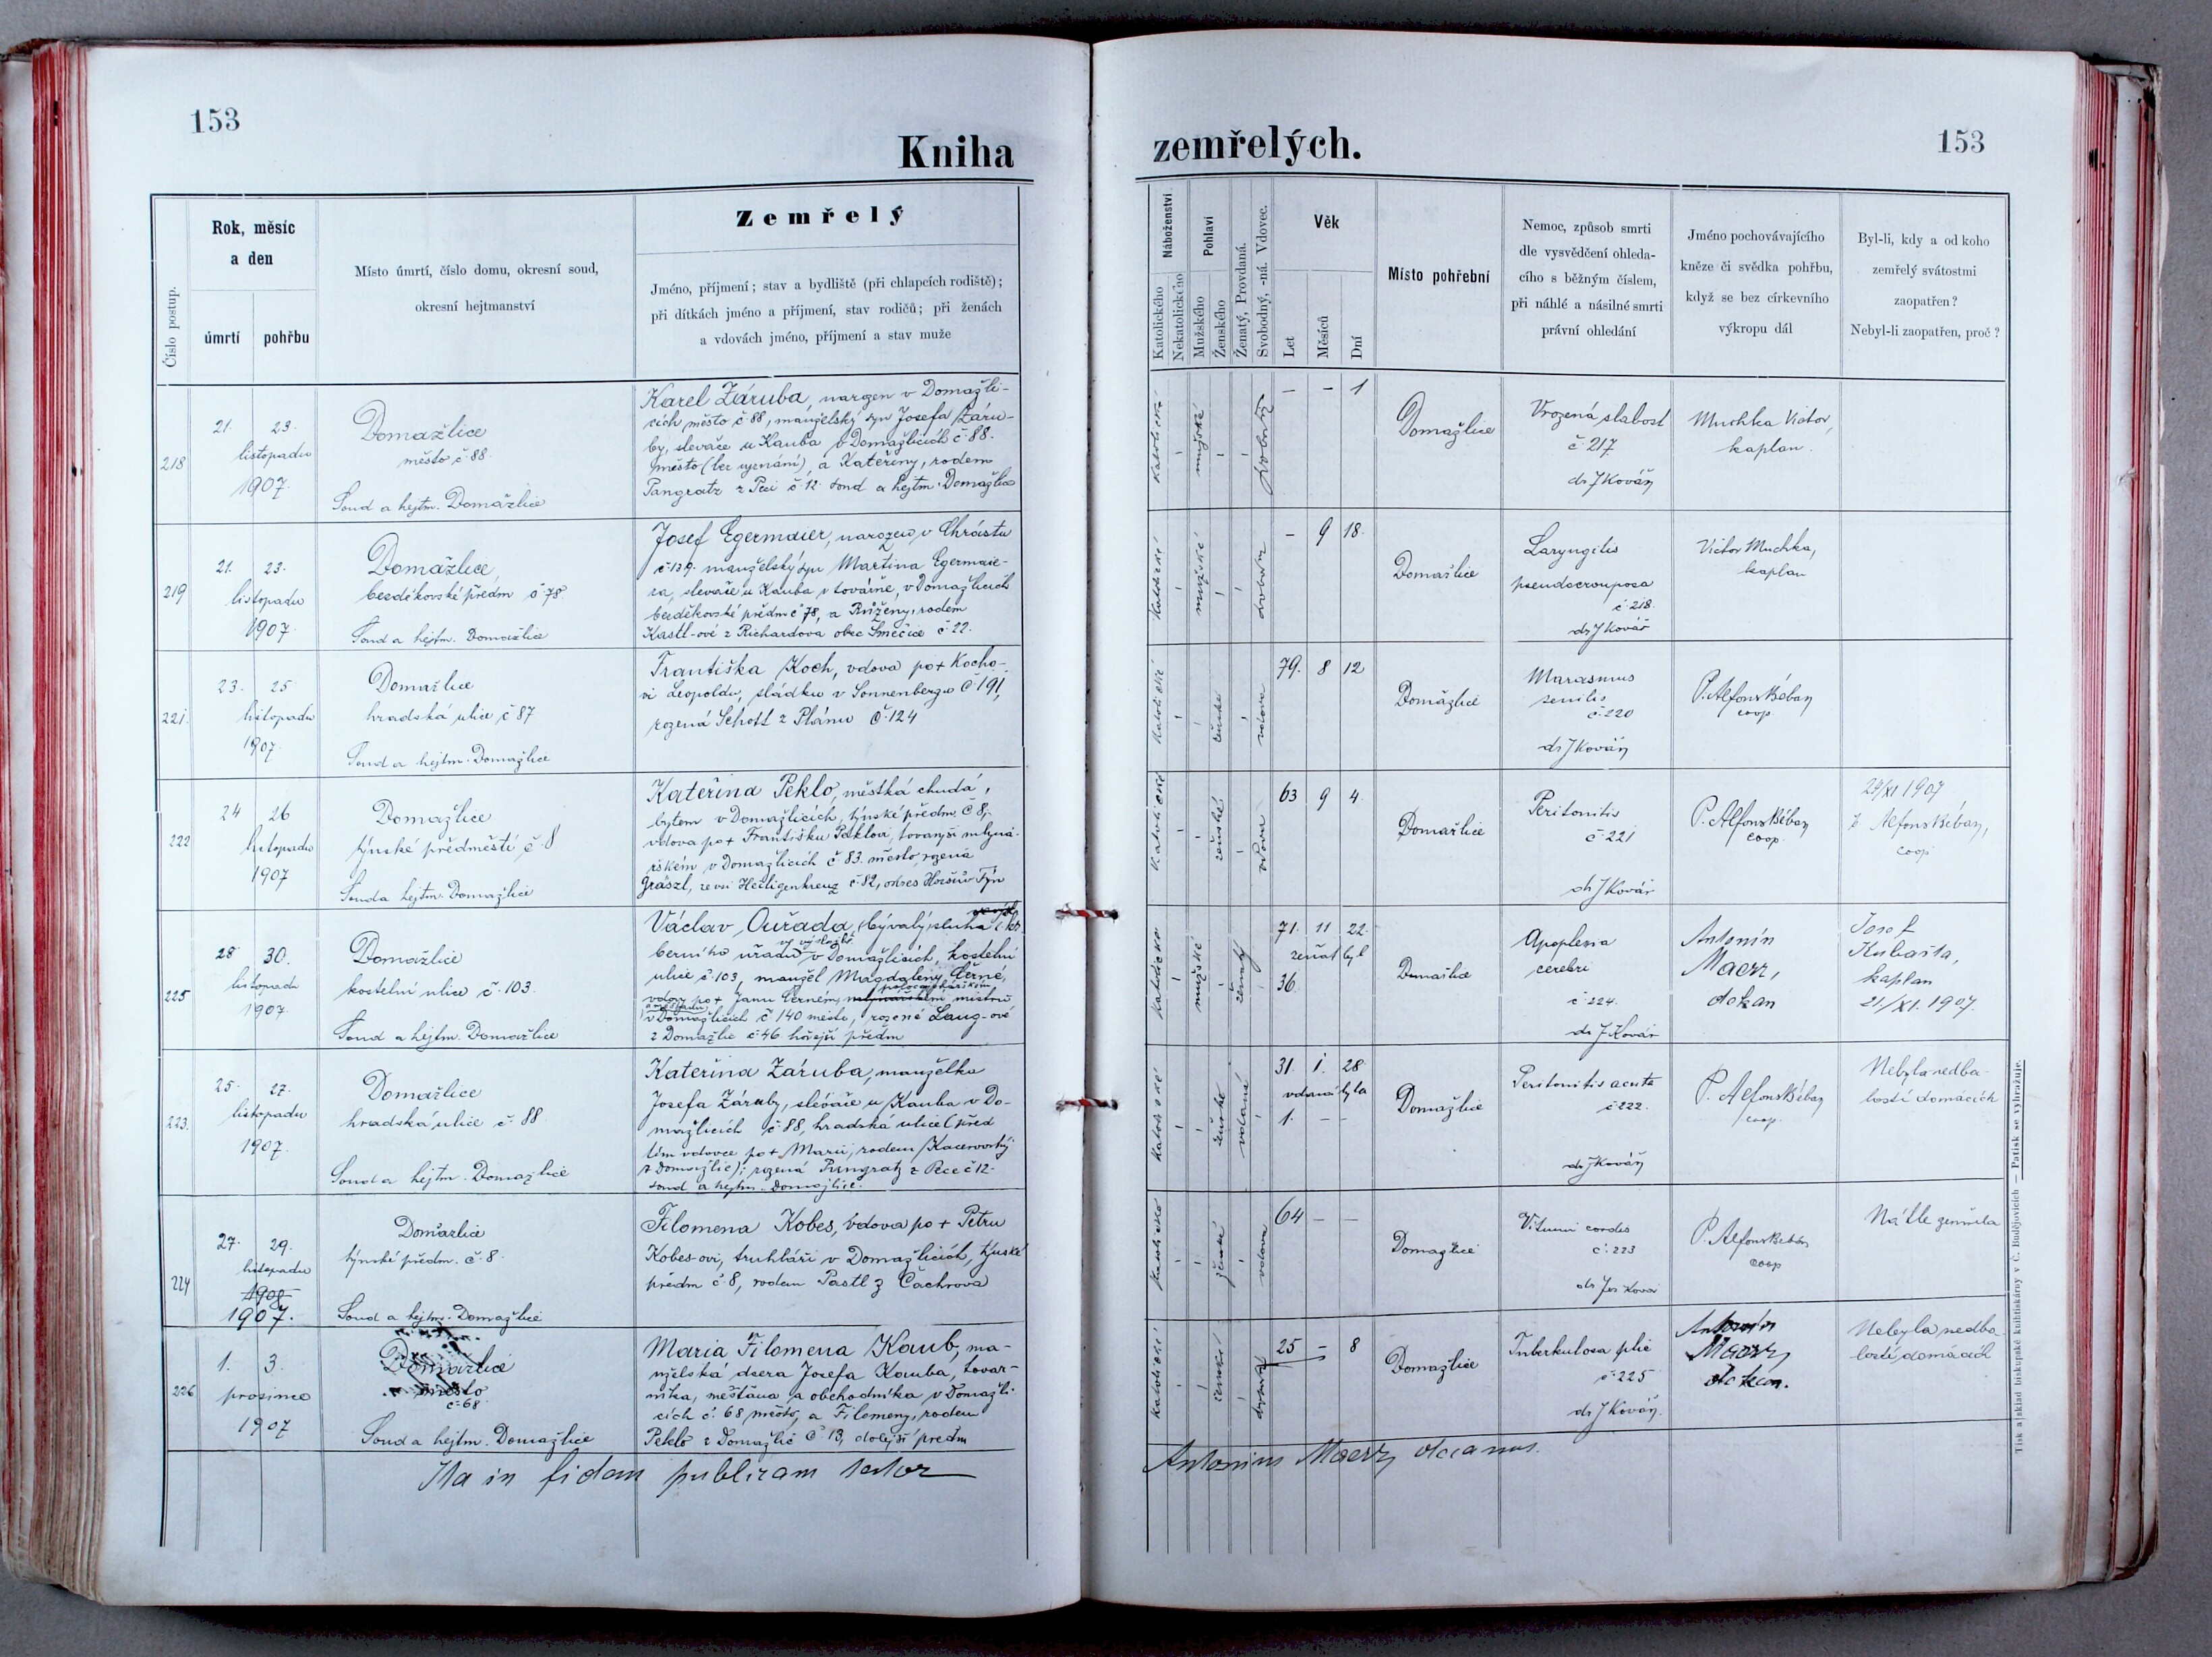 153
Kniha
Zemřelý
Rok, měsíc
a den
Číslo postup.
úmrtí
pohřbu
Místo úmrtí, číslo domu, okresní soud,
okresní hejtmanství
Jméno, příjmení; stav a bydliště (při chlapcích rodiště);
při dítkách jméno a příjmení, stav rodičů; při ženách
a vdovách jméno, příjmení a stav muže
218
21. 23.
listopadu
1907.
Domažlice
město č. 88.
Soud a hejtm. Domažlice
Karel Záruba, narozen v Domažli-
cích, město č 88, manželský syn Josefa Záru-
by, slevače u Kauba v Domažlicích č 88.
město (bez vyznání), a Kateřiny, rodem
Pangratz z Peci č. 12. soud a hejtm. Domažlice
219
21. 23.
listopadu
1907.
Domažlice
bezděkovské předm č 78
Soud a hejtm. Domažlice
Josef Egermaier, narozen v Chrástu
č. 139. manželský syn Martina Egermaie-
ra, slevače u Kauba v továrně, v Domažlicích
bezděkovské předm č 78, a Růženy, rodem
Kastl-ové z Richardova obec Směčice č. 22.
221.
23. 25
listopadu
1907.
Domažlice
hradská ulice č 87
Soud a hejtm. Domažlice
Františka Koch, vdova po + Kocho-
vi Leopoldu, sládku v Sonnenbergu č. 191,
rozená Schottl z Plánu č. 124
222
24 26
listopadu
1907
Domažlice
týnské předměstí č. 8
Soud a hejtm. Domažlice
Kateřina Peklo, městká chudá,
bytem v Domažlicích, týnské předm. č 8,
vdova po + Františku Peklovi, tovaryši mlyná-
řském v Domažlicích č 83. město, rozená
Grässl, ze vsi Heiligenkreuz č. 82, okres Horšův Týn
225
28 30.
listopadu
1907.
Domažlice
kostelní ulice č. 103.
Soud a hejtm. Domažlice
Václav Ouřada, bývalý sluha
berního úřadu v Domažlicích, kostelní
ve výslužbě
ulice č. 103, manžel Magdaleny Černé,
vdovy po + Janu Černém, mistru
v Domažlicích č 140 město, rozené Lang-ové
z Domažlic č. 46 hořejší předm
223.
25. 27.
listopadu
1907.
Domažlice
hradská ulice č. 88.
Soud a hejtm. Domažlice
Kateřina Záruba, manželka
Josefa Záruby, slévače u Kauba v Do-
mažlicích č. 88, hradská ulice (před
tím vdovce po + Marii, rodem Kacerovský
z Domažlic); rozená Pangratz z Pece č 12.
soud a hejtm. Domažlice.
224
27. 29.
listopadu
1908
1907.
Domažlice
týnské předm. č. 8.
Soud a hejtm. Domažlice
Filomena Kobes, vdova po + Petru
Kobes-ovi, truhláři v Domažlicích, týnské
předm č. 8, rodem Pastl z Čachrova
226
1. 3.
prosince
1907
Domažlice
město
č. 68
Soud a hejtm. Domažlice
Maria Filomena Kaub, ma-
nželská dcera Josefa Kauba, továr-
níka, měšťana a obchodníka v Domažli-
cích č. 68 město, a Filomeny, rodem
Peklo z Domažlic č 13, dolejší předm
Ita in fidem publicam testor
zemřelých.
153
Náboženství
Katolického
Nekatolického
Pohlaví
Mužského
Ženského
Ženatý, Provdaná.
Svobodný, -ná. Vdovec.
Věk
Let
Měsíců
Dní
Místo pohřební
Nemoc, způsob smrti
dle vysvědčení ohleda-
cího s běžným číslem,
při náhlé a násilné smrti
právní ohledání
Jméno pochovávajícího
kněze či svědka pohřbu,
když se bez církevního
výkropu dál
Byl-li, kdy a od koho
zemřelý svátostmi
zaopatřen?
Nebyl-li zaopatřen, proč?
katolické mužské svobodný
– – 1
Domažlice
Vrozená slabost
č. 217
dr J Kovář
Muchka Victor,
kaplan.
katolické mužské svobodný
– 9 18.
Domažlice
Laryngitis
pseudocrouposa
č. 218.
dr J Kovář
Victor Muchka,
kaplan
katolické ženské vdova
79. 8 12
Domažlice
Marasmus
senilis
č. 220
dr J Kovář
P. Alfons Bébar
coop.
katolické ženské vdova
63 9 4.
Domažlice
Peritonitis
č. 221
dr J Kovář
P. Alfons Bébar
coop.
24/XI 1907
P. Alfons Bébar,
coop
katolické mužské ženatý
71. 11 22.
ženat byl
36.
Domažlice
Apoplexia
cerebri
č. 224.
dr J Kovář
Antonín
Maerz,
děkan
Josef
Kubašta,
kaplan
21/XI. 1907.
katolické ženské vdaná
31. 1. 28.
vdaná byla
1. – –
Domažlice
Peritonitis acuta
č. 222.
dr J Kovář
P. Alfons Bébar
coop.
Nebyla nedba-
lostí domácích
katolické ženské vdova
64 – –
Domažlice
Vitium cordis
č. 223
dr Jos Kovář
P. Alfons Bébar
coop
Náhle zemřela
katolické ženské svobodná
25 – 8
Domažlice
Tuberkulosa plic
č. 225
dr J Kovář.
Antonín
Maerz,
děkan.
Nebyla nedba-
lostí domácích
Antonius Maerz, decanus.
Tisk a sklad biskupské knihtiskárny v Č. Budějovicích — Patisk se vyhražuje.